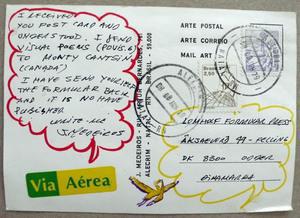 I RECEIVED
YOU POST CARD AND
UNDERSTOOD. I SEND
VISUAL POEMS
TO MONTY CANTSIN
(CANADA)
I HAVE SEND YOUR
THE FORMULAR BACK
AND IT IS NO HAVE
PUBLISHER
WRITE ME
J. MEDEIROS
Via Aérea
J. MEDEIROS - RUA
ALECRIM - NATAL - RN - BRASIL - 59.000
ARTE POSTAL
ARTE CORREIO
MAIL ART
LOMHOLT FORMULAR PRESS
DK 8300 ODDER
DINAMARCA